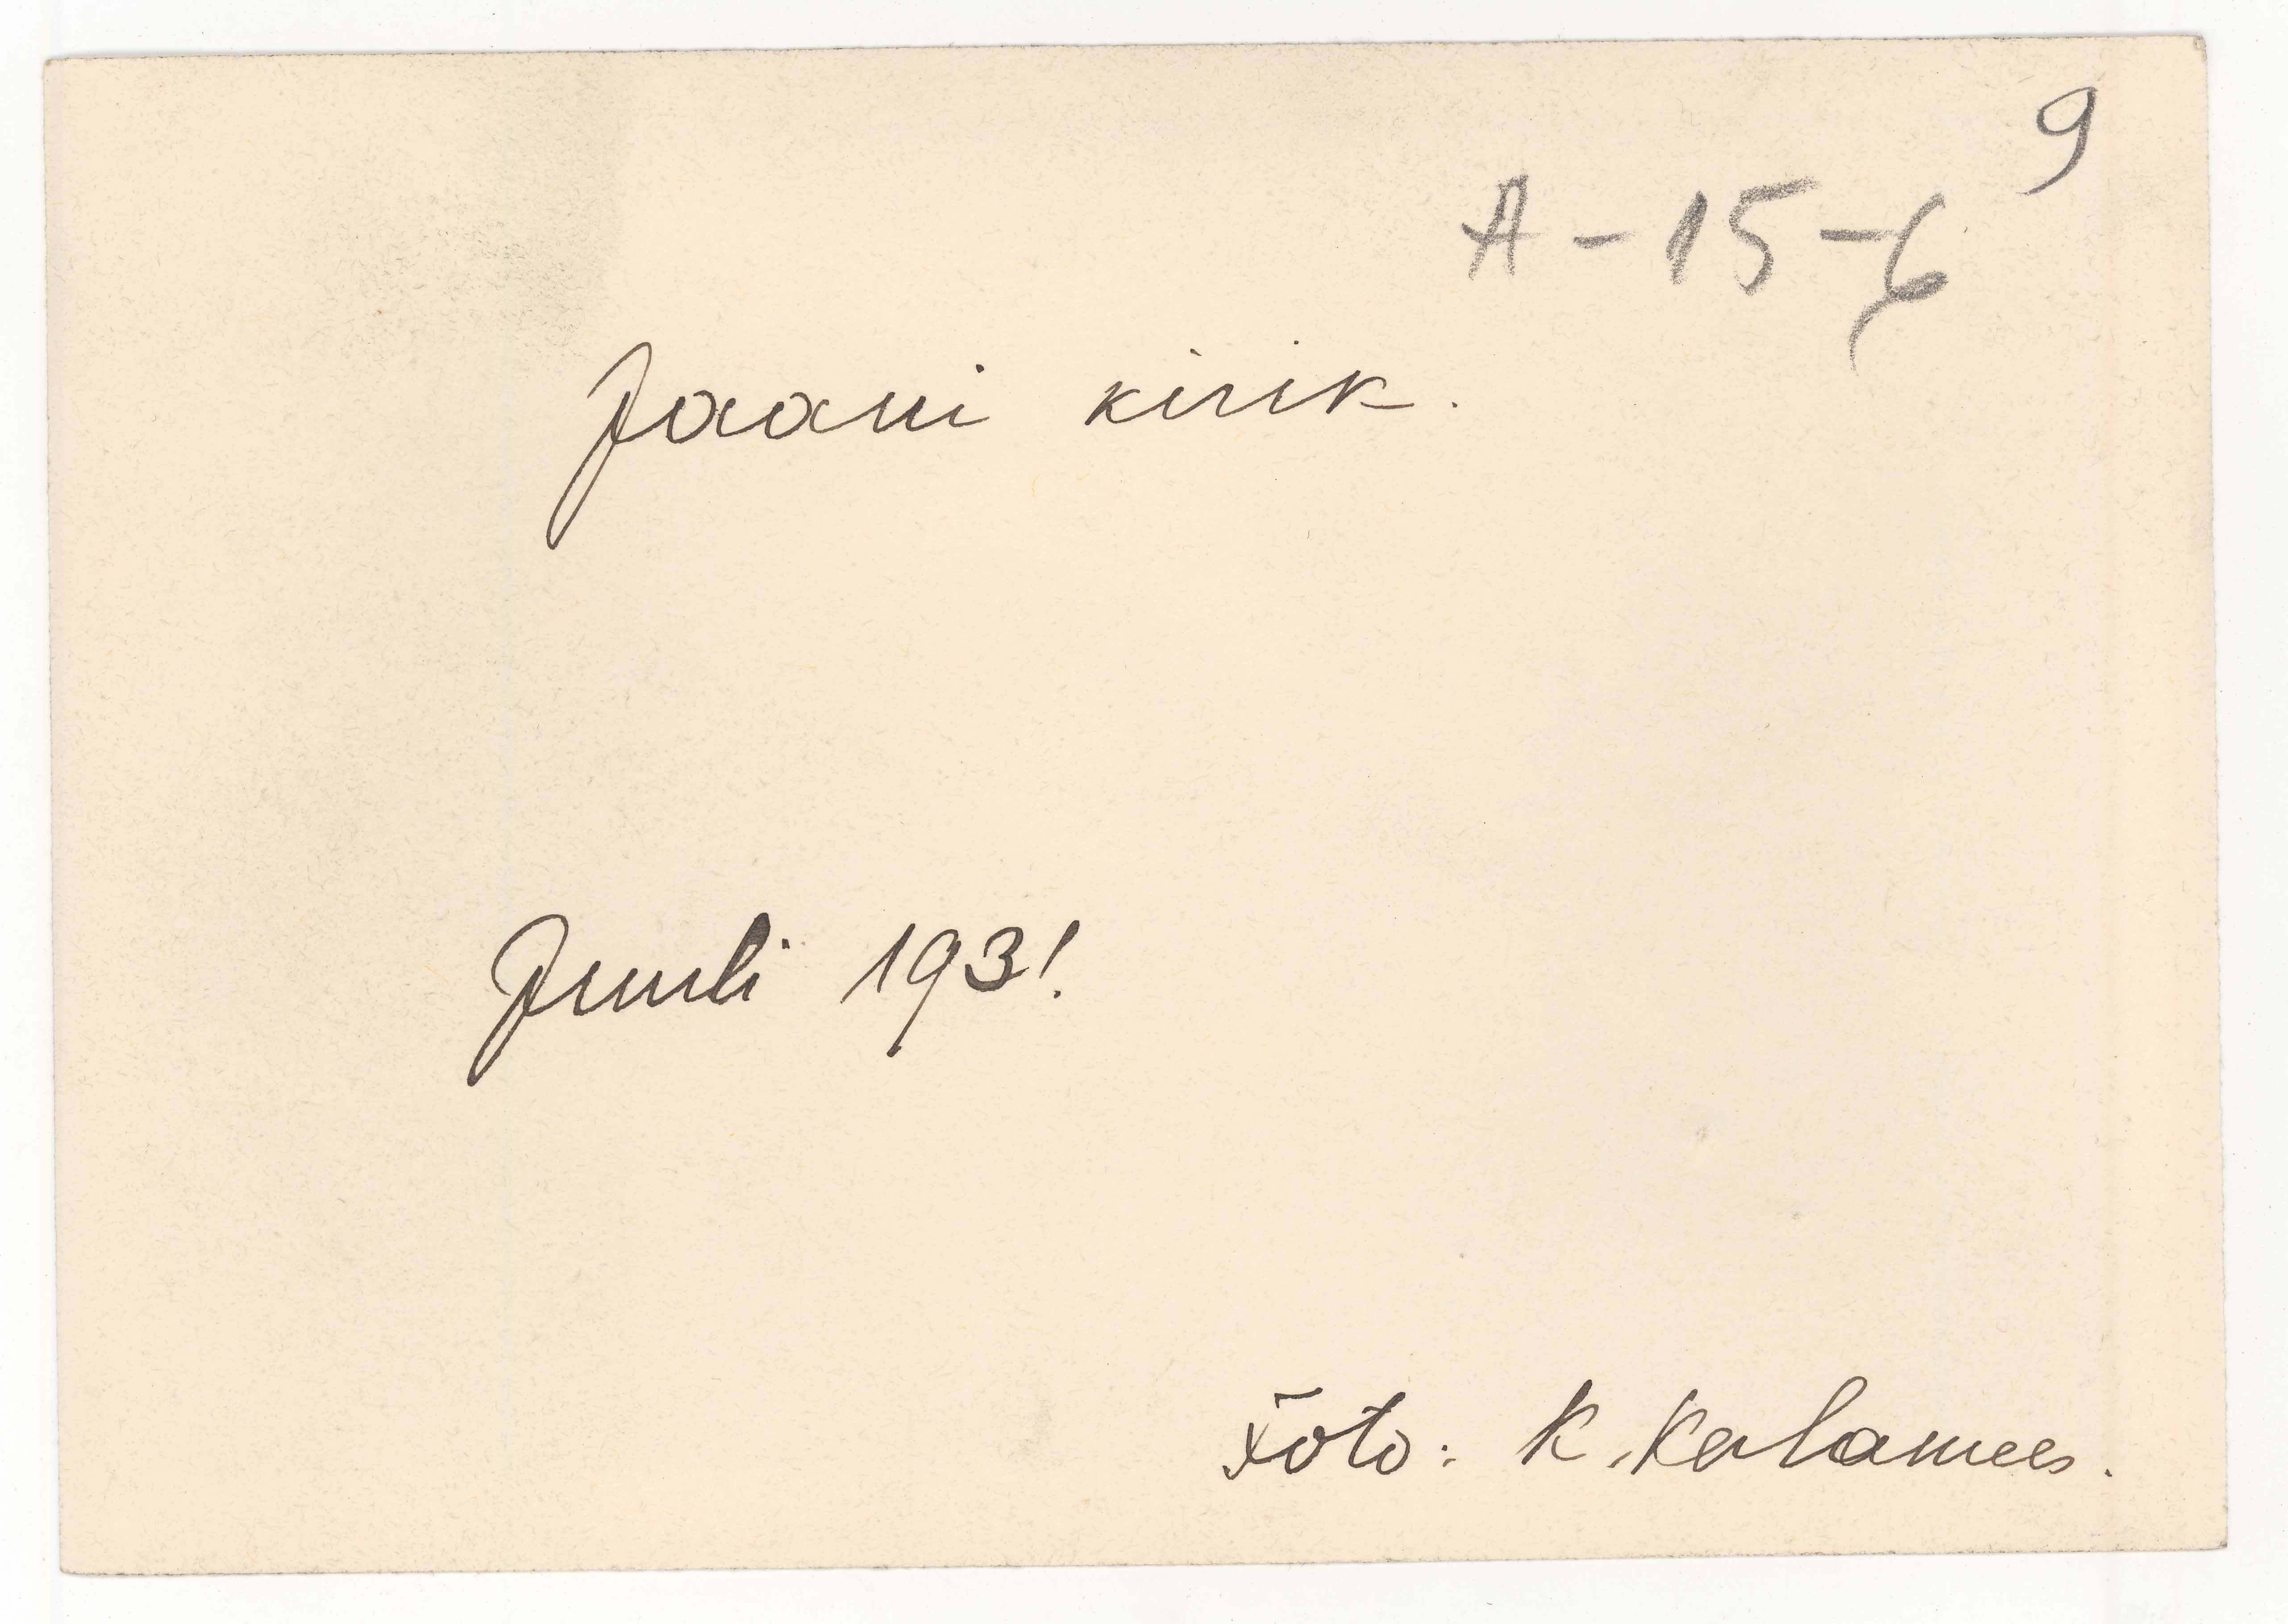 9
A-15-6
Jaani kirik.
Juuli 1931.
Foto: K. Kalamees.